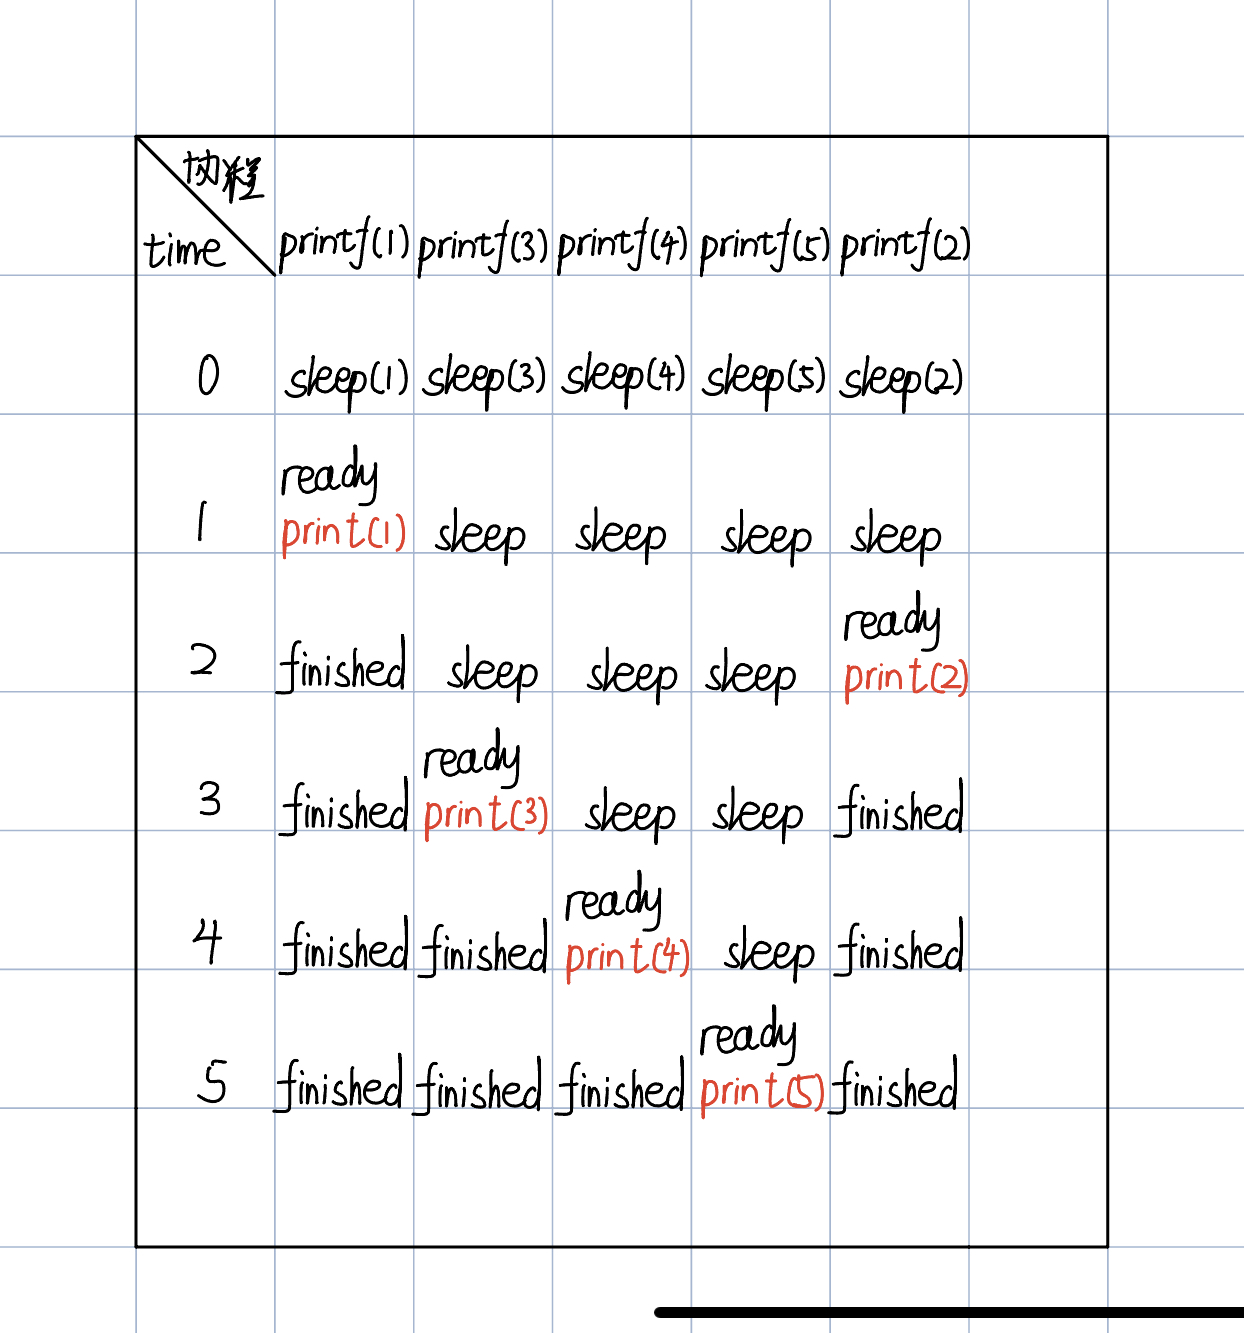 协程
time printf(1) printf(3) printf(4) printf(5) printf(2)
0 sleep(1) sleep(3) sleep(4) sleep(5) sleep(2)
ready
1 print(1) sleep sleep sleep sleep
ready
2 finished sleep sleep sleep print(2)
ready
3 finished print(3) sleep sleep finished
ready
4 finished finished print(4) sleep finished
ready
5 finished finished finished print(5) finished